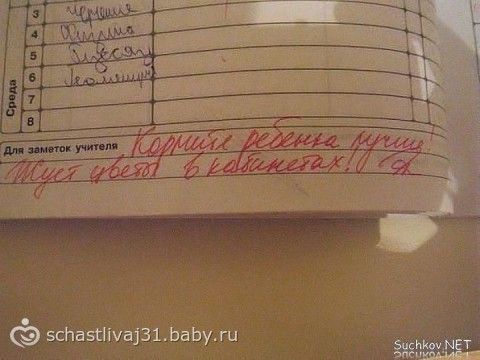 3 Черчение
4 Физика
5 Русский
6 Геометрия
7
8
Среда
Для заметок учителя Кормите ребенка лучше!
Жует цветы в кабинетах!
schastlivaj31.baby.ru
Suchkov.NET